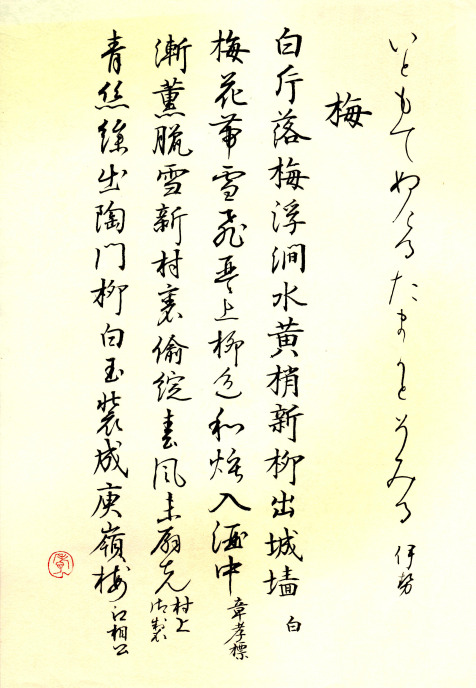 いともてぬけるたまかとそみる 伊勢
梅
白片落梅浮澗水黄梢新柳出城墻 白
梅花帯雪飛琴上柳色和煙入酒中 章孝標
漸薫臘雪新封裏偸綻春風未扇先 村上御製
青絲繰出陶門柳白玉装成庾嶺梅 江相公